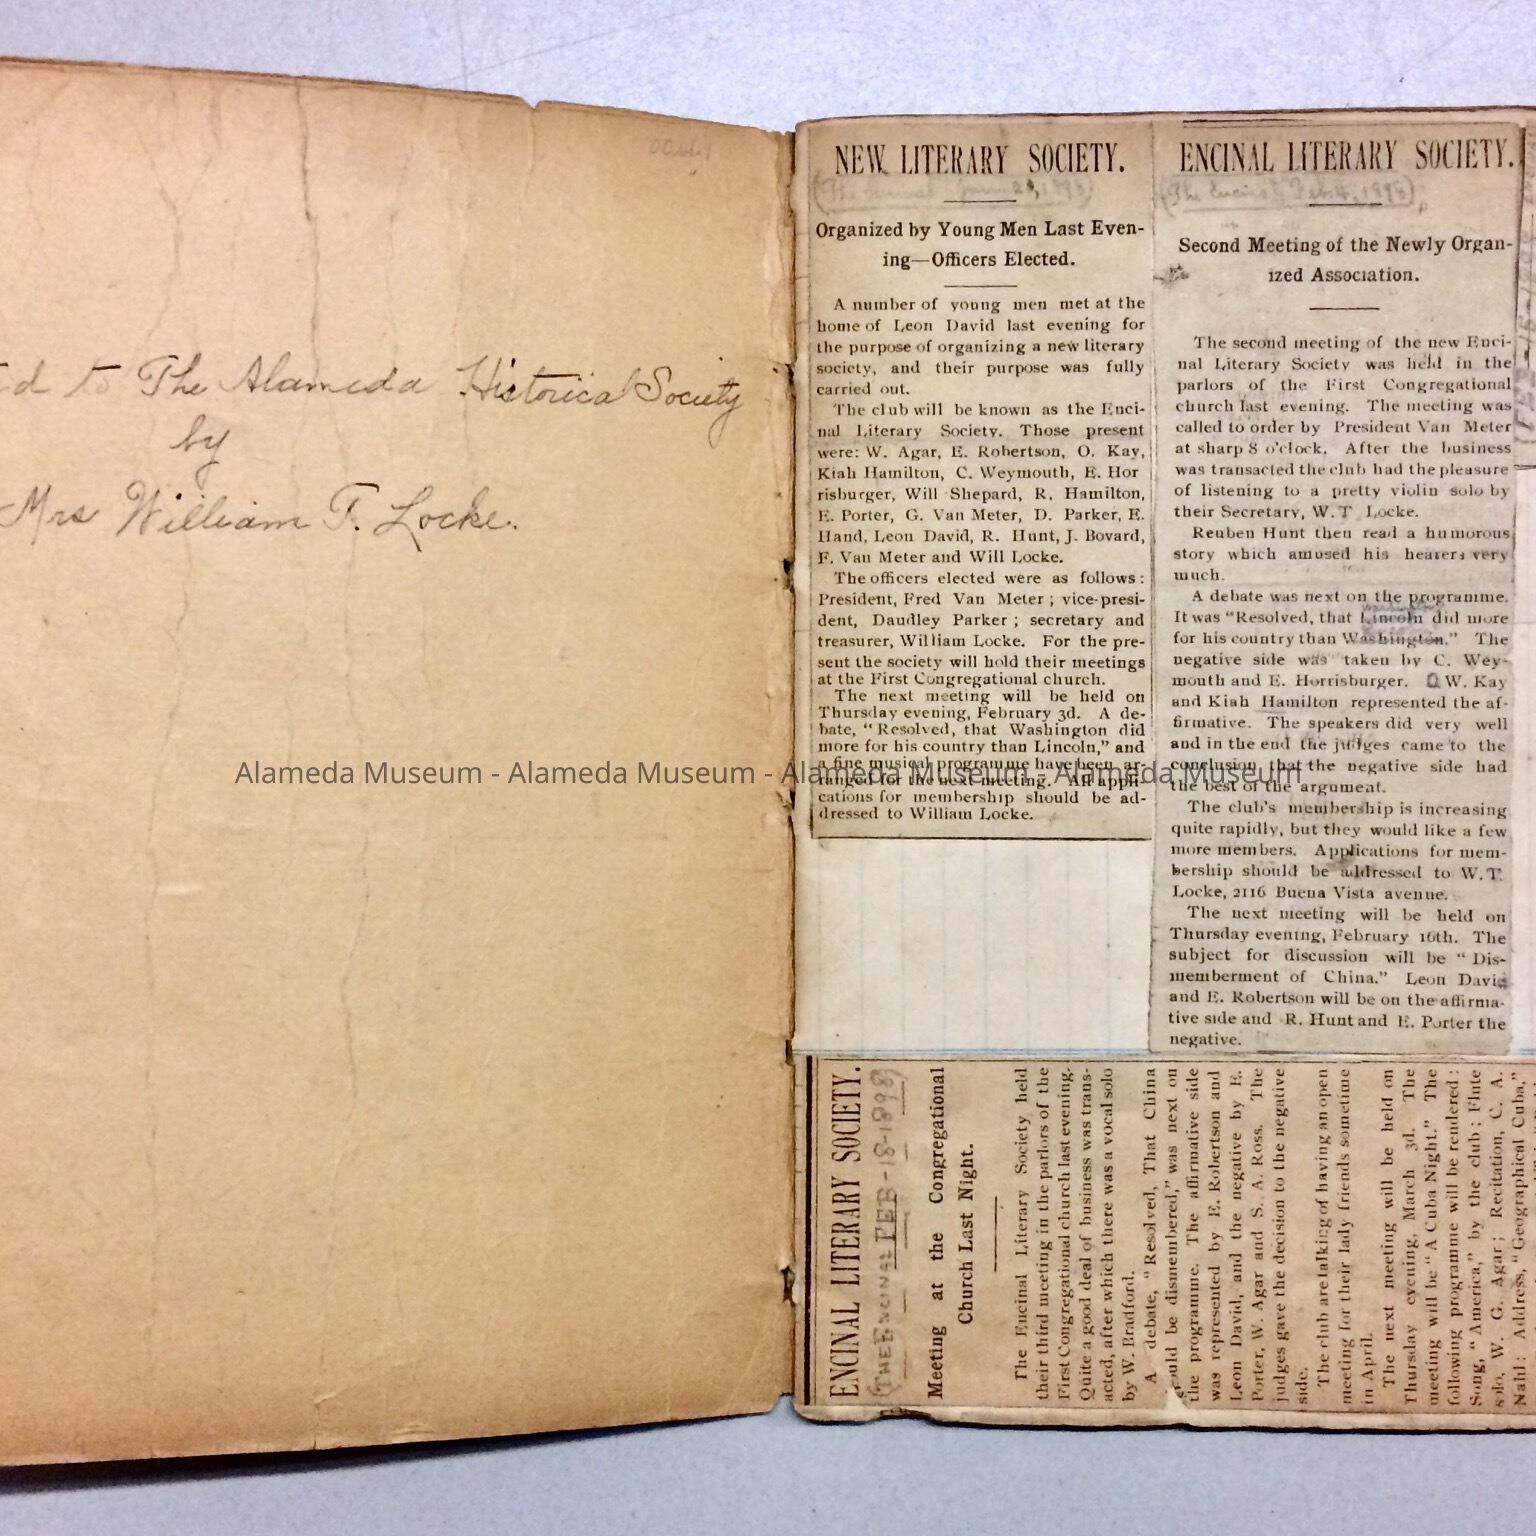 ed to The Alameda Historical Society
by
Mrs William F. Locke.
NEW LITERARY SOCIETY.
(The Encinal 1898)
Organized by Young Men Last Even-
ing—Officers Elected.
A number of young men met at the
home of Leon David last evening for
the purpose of organizing a new literary
society, and their purpose was fully
carried out.
The club will be known as the Enci-
nal Literary Society. Those present
were: W. Agar, E. Robertson, O. Kay,
Kiah Hamilton, C. Weymouth, E. Hor
risburger, Will Shepard, R. Hamilton,
E. Porter, G. Van Meter, D. Parker, E.
Hand, Leon David, R. Hunt, J. Bovard,
F. Van Meter and Will Locke.
The officers elected were as follows:
President, Fred Van Meter; vice-presi-
dent, Daudley Parker; secretary and
treasurer, William Locke. For the pre-
sent the society will hold their meetings
at the First Congregational church.
The next meeting will be held on
Thursday evening, February 3d. A de-
bate, "Resolved, that Washington did
more for his country than Lincoln," and
a fine musical programme have been ar-
ranged for the next meeting. All appli-
cations for membership should be ad-
dressed to William Locke.
ENCINAL LITERARY SOCIETY.
(The Encinal Feb. 4, 1898)
Second Meeting of the Newly Organ-
ized Association.
The second meeting of the new Enci-
nal Literary Society was held in the
parlors of the First Congregational
church last evening. The meeting was
called to order by President Van Meter
at sharp 8 o'clock. After the business
was transacted the club had the pleasure
of listening to a pretty violin solo by
their Secretary, W.T. Locke.
Reuben Hunt then read a humorous
story which amused his hearers very
much.
A debate was next on the programme.
It was "Resolved, that Lincoln did more
for his country than Washington." The
negative side was taken by C. Wey-
mouth and E. Horrisburger. O W. Kay
and Kiah Hamilton represented the af-
firmative. The speakers did very well
and in the end the judges came to the
conclusion that the negative side had
the best of the argument.
The club's membership is increasing
quite rapidly, but they would like a few
more members. Applications for mem-
bership should be addressed to W.T.
Locke, 2116 Buena Vista avenue.
The next meeting will be held on
Thursday evening, February 16th. The
subject for discussion will be "Dis-
memberment of China." Leon David
and E. Robertson will be on the affirma-
tive side and R. Hunt and E. Porter the
negative.
ENCINAL LITERARY SOCIETY.
(THE ENCINAL FEB-18-1898)
Meeting at the Congregational
Church Last Night.
The Encinal Literary Society held
their third meeting in the parlors of the
First Congregational church last evening.
Quite a good deal of business was trans-
acted, after which there was a vocal solo
by W. Bradford.
A debate, "Resolved, That China
should be dismembered," was next on
the programme. The affirmative side
was represented by E. Robertson and
Leon David, and the negative by E.
Porter, W. Agar and S. A. Ross. The
judges gave the decision to the negative
side.
The club are talking of having an open
meeting for their lady friends sometime
in April.
The next meeting will be held on
Thursday evening, March 3d. The
meeting will be "A Cuba Night." The
following programme will be rendered:
Song, "America," by the club; Flute
solo, W. G. Agar; Recitation, C. A.
Nahl; Address, "Geographical Cuba,"
Alameda Museum - Alameda Museum - Alameda Museum - Alameda Museum